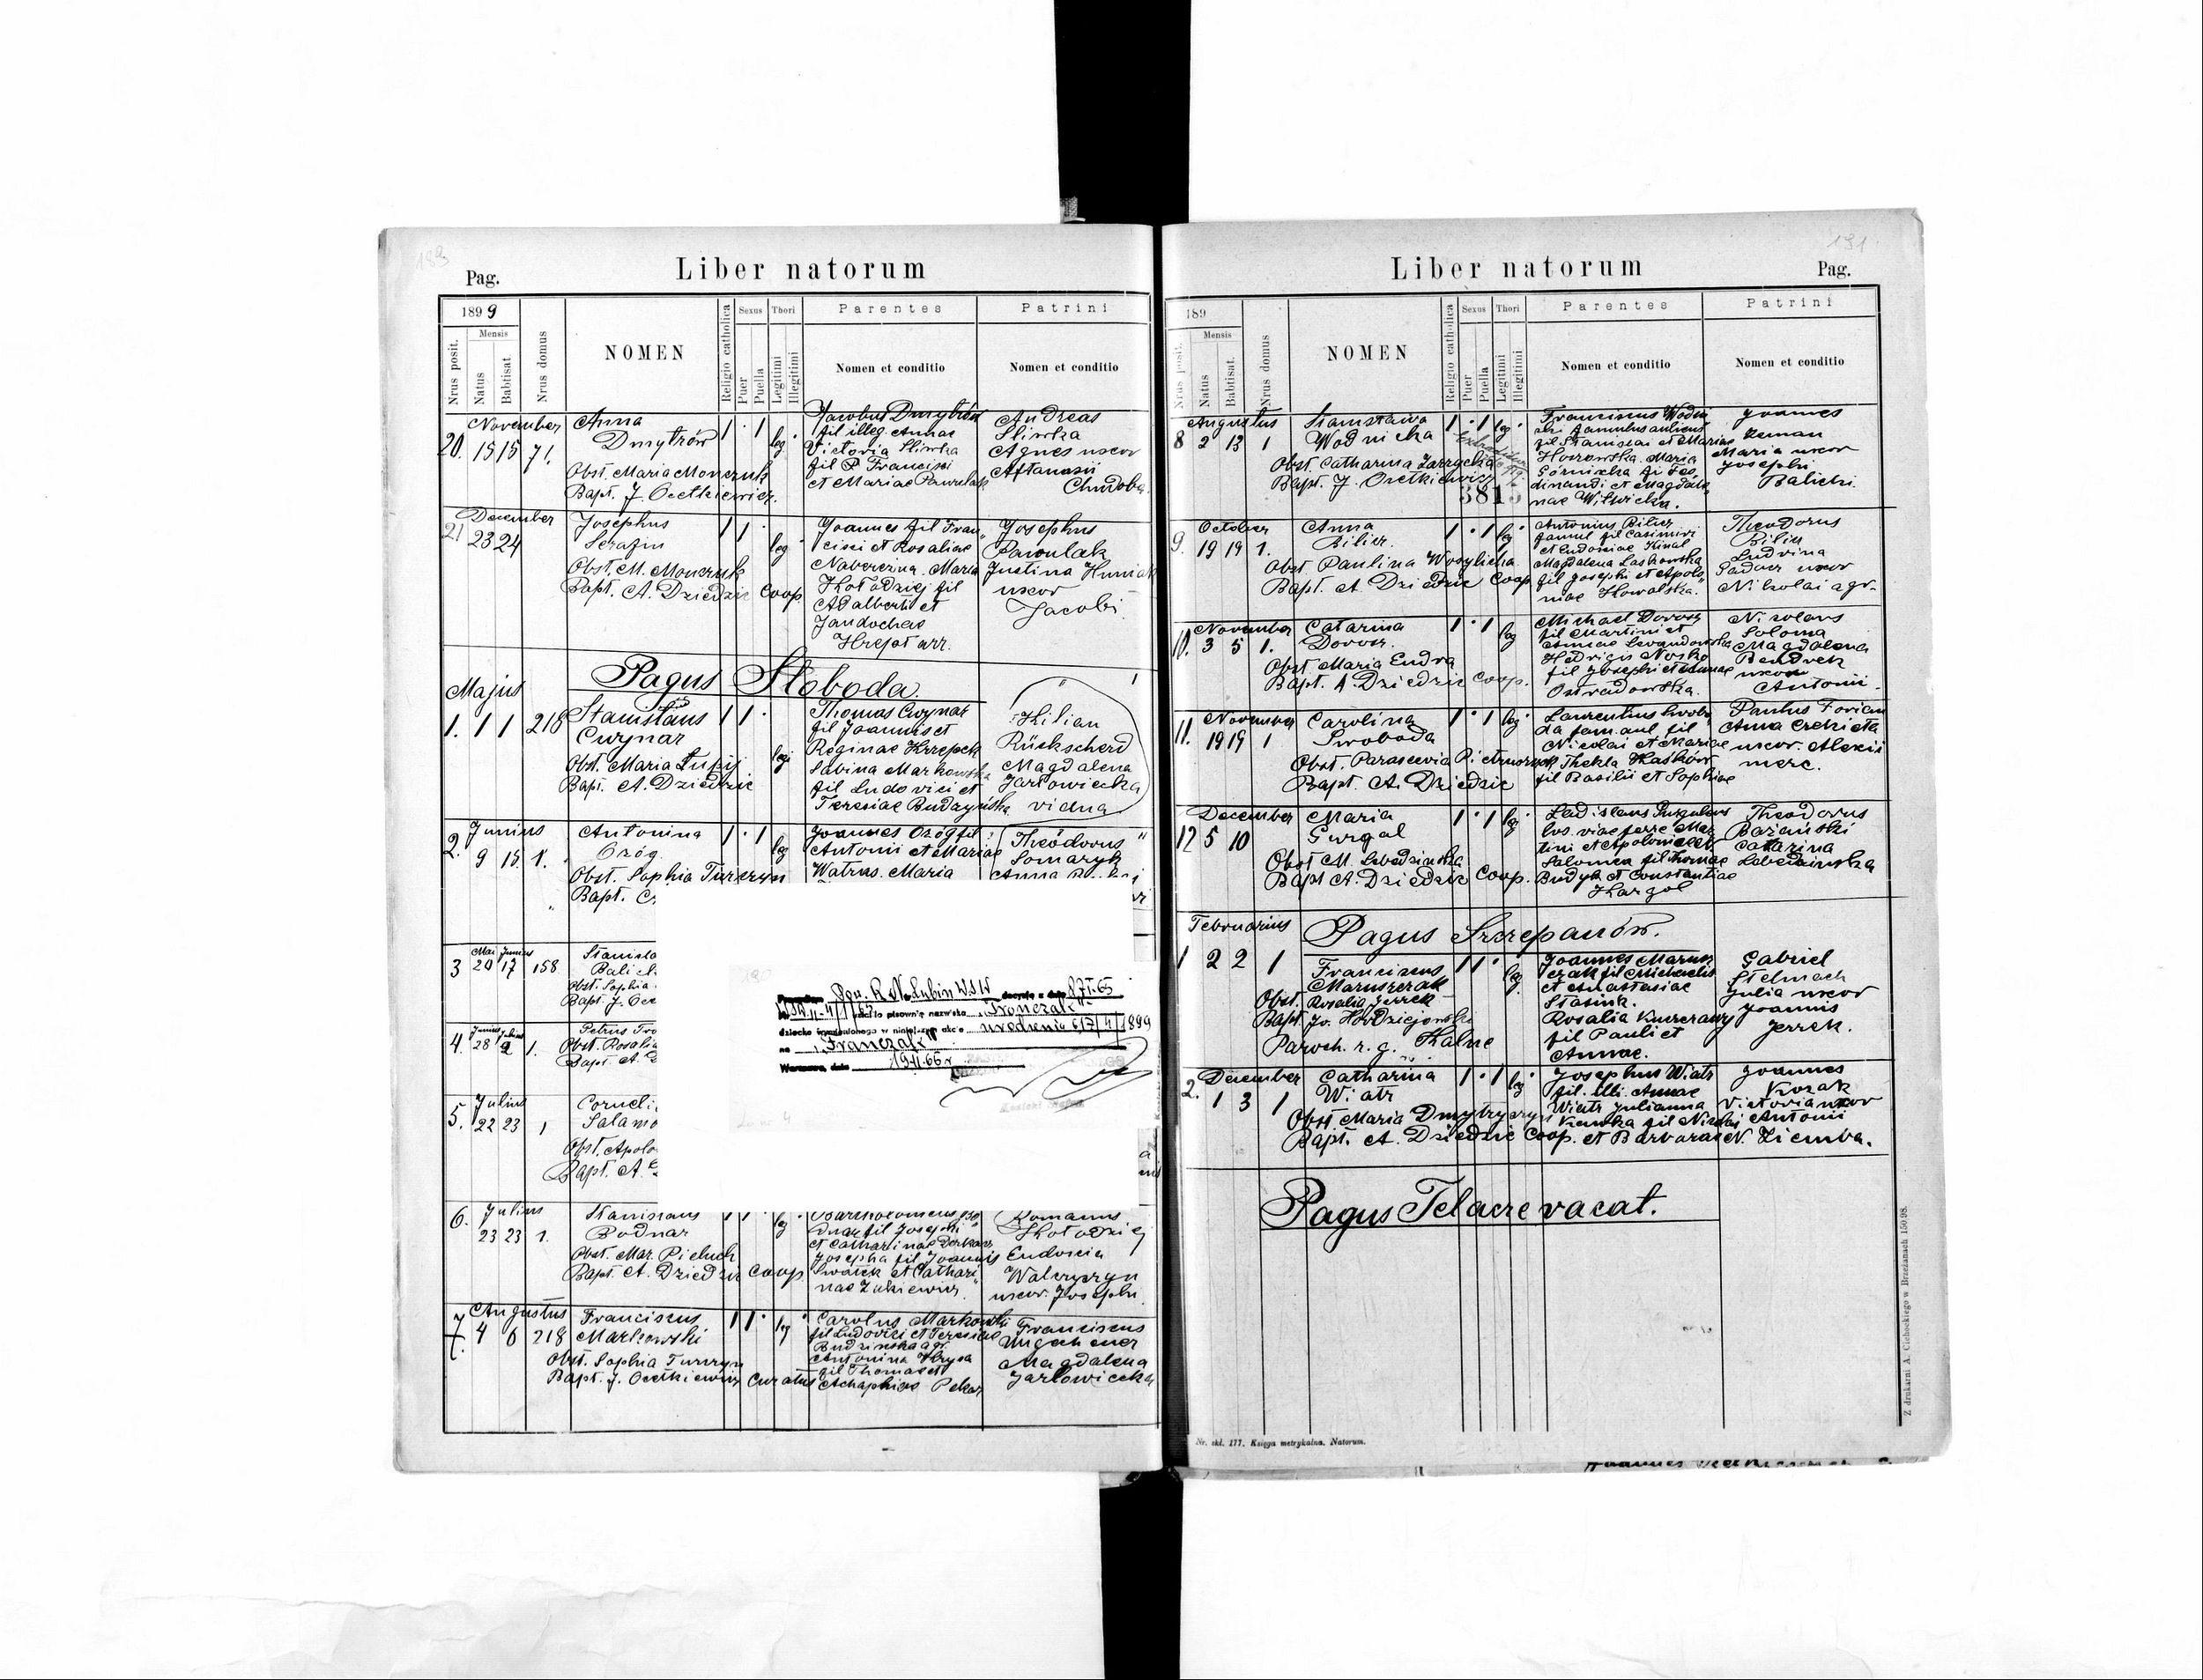 183
Pag.
Liber natorum
1899
Nrus posit.
Mensis
Natus
Babtisat.
Nrus domus
NOMEN
Religio catholica
Sexus
Puer
Puella
Thori
Legitimi
Illegitimi
Parentes
Nomen et conditio
Patrini
Nomen et conditio
November
20. 15 15 71.
Anna
Dmytrów
Obst. Maria Monczuk
Bapt. J. Ocetkiewicz.
1 1 leg
Jacobus Dmytrów
fil illeg. Annae
Victoria Sliwka
fil Francisci
et Mariae Pawulak
Andreas
Sliwka
Agnes uxor
Aftanasii
Chudoba
December
21 23 24
Josephus
Serafin
Obst. M. Monczuk
Bapt. A. Dziedzic Coop.
1 1 leg
Joannes fil Fran„
cisci et Rosaliae
Naberezna. Maria
Kołodziej fil
Adalberti et
Jandochas
Hrejst arr.
Josephus
Pawulak
Justina Huniak
uxor
Jacobi
Pagus Sloboda.
Majus
1. 1 1 218
Stanislaus
Cwynar
Obst. Maria Łupij
Bapt. A. Dziedzic
1 1 leg
Thomas Cwynar
fil Joannis et
Reginae Krzepek
Sabina Markowska
fil Ludovici et
Teresiae Budzyńska
Kilian
Rückscherd
Magdalena
Jarłowiecka
vidua
Junius
2. 9 15 1.
Antonina
Ozóg
Obst. Sophia Turczyn
Bapt.
1 1 leg
Joannes Ozóg fil
Antonii et Mariae
Watras. Maria
Theodorus
Somaryk
Anna
Mai Junius
3 29 17 158
Obst. Sophia
Bapt. J.
Junius Julius
4. 28 2 1.
Petrus
Obst. Rosalia
Bapt. A.
Julius
5. 22 23 1
Obst.
Bapt. A.
decyzją z dnia
pisownię nazwiska
dziecka wymienionego w niniejszym akcie urodzenia 6/7/4/1899
na „Franczak"
Warszawa, dnia
Julius
6. 23 23 1.
Stanislaus
Bodnar
Obst. Mar. Pieluch
Bapt. A. Dziedzic Coop
Bartholomeus Bo
dnar fil Josephi
et Catharinae Derkacz
Josepha fil Joannis
Swatek et Cathari„
nae Zukiewicz
Romanus
Kołodziej
Eudoxia
Walczyszyn
uxor. Josephi
Augustus
7. 4 6 218
Franciscus
Markowski
Obst. Sophia Turczyn
Bapt. J. Ocetkiewicz Curatus
1 1 leg
Carolus Markowski
fil Ludovici et Teresiae
Budzinska agr.
Antonina Hryca
fil Thomae et
Achaphiae Pekar
Franciscus
Ungeheuer
Magdalena
Jarłowiecka
191
Liber natorum
Pag.
189
Nrus posit.
Mensis
Natus
Babtisat.
Nrus domus
NOMEN
Religio catholica
Sexus
Puer
Puella
Thori
Legitimi
Illegitimi
Parentes
Nomen et conditio
Patrini
Nomen et conditio
Augustus
8 2 13 1
Stanislawa
Wodnicka
Obst. Catharina Zarzycka
Bapt. J. Ocetkiewicz
3815
1 1 leg
Franciscus Wodni
cki famulus aulicus
fil Stanislai et Mariae
Horzowska. Maria
Górnicka fi Fer
dinandi et Magdale
nae Witwicka.
Joannes
Reman
Maria uxor
Josephi
Balicki.
October
9. 19 19 1.
Anna
Bilicz.
Obst Paulina Wosylicha
Bapt. A Dziedzic Coop
1 1 leg
Antonius Bilicz
famul fil Casimiri
et Eudoxiae Kinal
Magdalena Laskowska
fil Josephi et Apolo„
niae Kowalska.
Theodorus
Bilicz
Ludvina
Sadowz uxor
Nikolai agr.
November
10. 3 5 1.
Catarina
Dorosz.
Obst Maria Eudra
Bapt. A. Dziedzic Coop.
1 1 leg
Michael Dorosz
fil Martini et
Annae Lewandowska
Hedvigis Nosko
fil Josephi et Annae
Ostradowska.
Nicolaus
Soloma
Magdalena
Bendrek
uxor
Antonii.
November
11. 19 19 1
Carolina
Swoboda
Obst. Parascevia Pietruszczak
Bapt A. Dziedzic
1 1 leg
Laurentius Swobo„
da fam. aul fil
Nicolai et Mariae
Thekla Haskow
fil Basilii et Sophiae
Paulus Forian
Anna Czekieta
uxor. Alexii
merc.
December
12 5 10
Maria
Gurgal
Obst M. Lebedzinska
Bapt A. Dziedzic Coop.
1 1 leg
cus. viae ferre. Mar
tini et Apoloniae
Salomea fil Thomae
Budyk et Constantiae
Kargol
Theodorus
Bazański
Catarina
Lebedzinska
Pagus Szczepanów.
Februarius
1 2 2 1
Franciscus
Maruszczak
Obst. Rosalia Jerrek
Bapt. Jo. Hordziejowski
Paroch. r. g. Kalne
1 1 leg.
Joannes Marusz
czak fil Michaelis
et Anastasiae
Stasiuk.
Rosalia Kuczerawy
fil Pauli et
Annae.
Gabriel
Stelmach
Julia uxor
Joannis
Jerrek.
December
2. 1 3 1
Catharina
Wiatr
Obst Maria Dmytryszyn
Bapt. A. Dziedzic Coop.
1 1 leg
Josephus Wiatr
fil. illi. Annae
Wiatr Julianna
Kawka fil Nicolai
et Barbarae N.
Joannes
Kozak
Victoria uxor
Antonii
Ziemba.
Pagus Telacze vacat.
Nr. skł. 177. Księga metrykalna. Natorum.
Z drukarni A. Cichockiego w Brzeżanach 150.98.